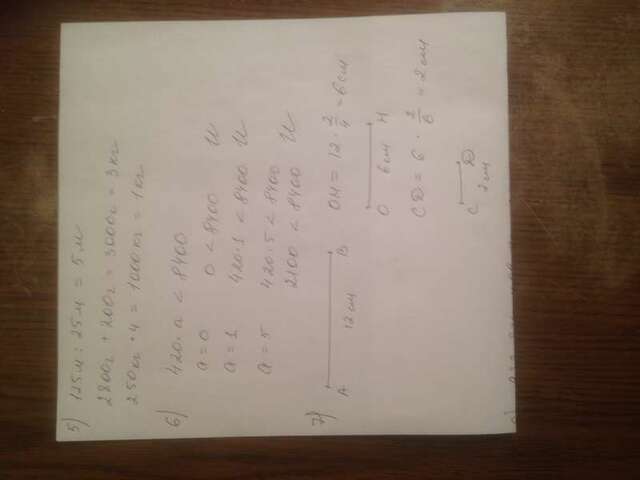 5) 125м : 25м = 5м
2800г + 200г = 3000г = 3кг
250кг • 4 = 1000кг = 1кг
6) 420 • a < 8400
a = 0 0 < 8400 И
a = 1 420 • 1 < 8400 И
a = 5 420 • 5 < 8400
2100 < 8400 И
7) OH = 12 • 2/4 = 6см
A 12см B
O 6см H
CD = 6 • 2/6 = 2см
C 2см D